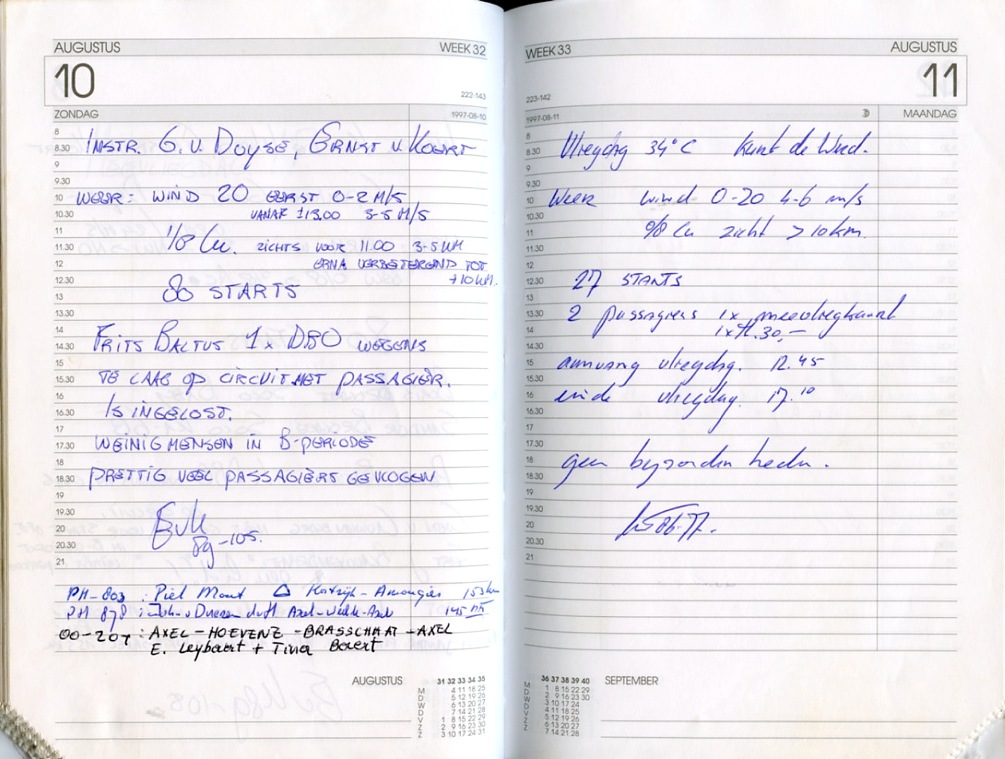 AUGUSTUS WEEK 32
10
222-143
ZONDAG 1997-08-10
8
8.30 INSTR. G. V. DUYSE, ERNST V KOERT
9
9.30
10 WEER: WIND 20 EERST 0-2 M/S
10.30 VANAF 13.00 3-5 M/S
11
11.30 1/8 Cu. ZICHTS VOOR 11.00 3-5 KM
12 ERNA VERBETEREND TOT
12.30 +10 KM.
80 STARTS
13
13.30
14 FRITS BALTUS 1x DBO WEGENS
14.30
15
15.30 TE LAAG OP CIRCUIT MET PASSAGIER.
16
16.30 IS INGELOST.
17
17.30 WEINIG MENSEN IN B-PERIODE
18
18.30 PRETTIG VEEL PASSAGIERS GEVLOGEN
19
19.30
20
20.30 8g-105.
21
PH-803 : Piet Mont Kortrijk-Amougies 153 km
PH 878 : v Duersen duft Axel-Axel 145 km
OO-207 : AXEL-HOEVENE-BRASSCHAAT-AXEL
E. Leybaert + Tina Baert
AUGUSTUS
31 32 33 34 35
M 4 11 18 25
D 5 12 19 26
W 6 13 20 27
D 7 14 21 28
V 1 8 15 22 29
Z 2 9 16 23 30
Z 3 10 17 24 31
WEEK 33 AUGUSTUS
11
223-142
1997-08-11 MAANDAG
8
8.30 Vliegdag 34°C Kunt de Wind.
9
9.30
10 Weer wind 0-20 4-6 m/s
10.30
11 0/8 Cu zicht >10km.
11.30
12
12.30 27 STARTS
13
13.30 2 passagiers 1x meevliegkaart
14 1x fl. 30,-
14.30
15 aanvang vliegdag. 12.45
15.30
16 einde vliegdag. 17.10
16.30
17
17.30
18 geen bijzonderheden.
18.30
19
19.30
20
20.30
21
36 37 38 39 40 SEPTEMBER
M 1 8 15 22 29
D 2 9 16 23 30
W 3 10 17 24
D 4 11 18 25
V 5 12 19 26
Z 6 13 20 27
Z 7 14 21 28